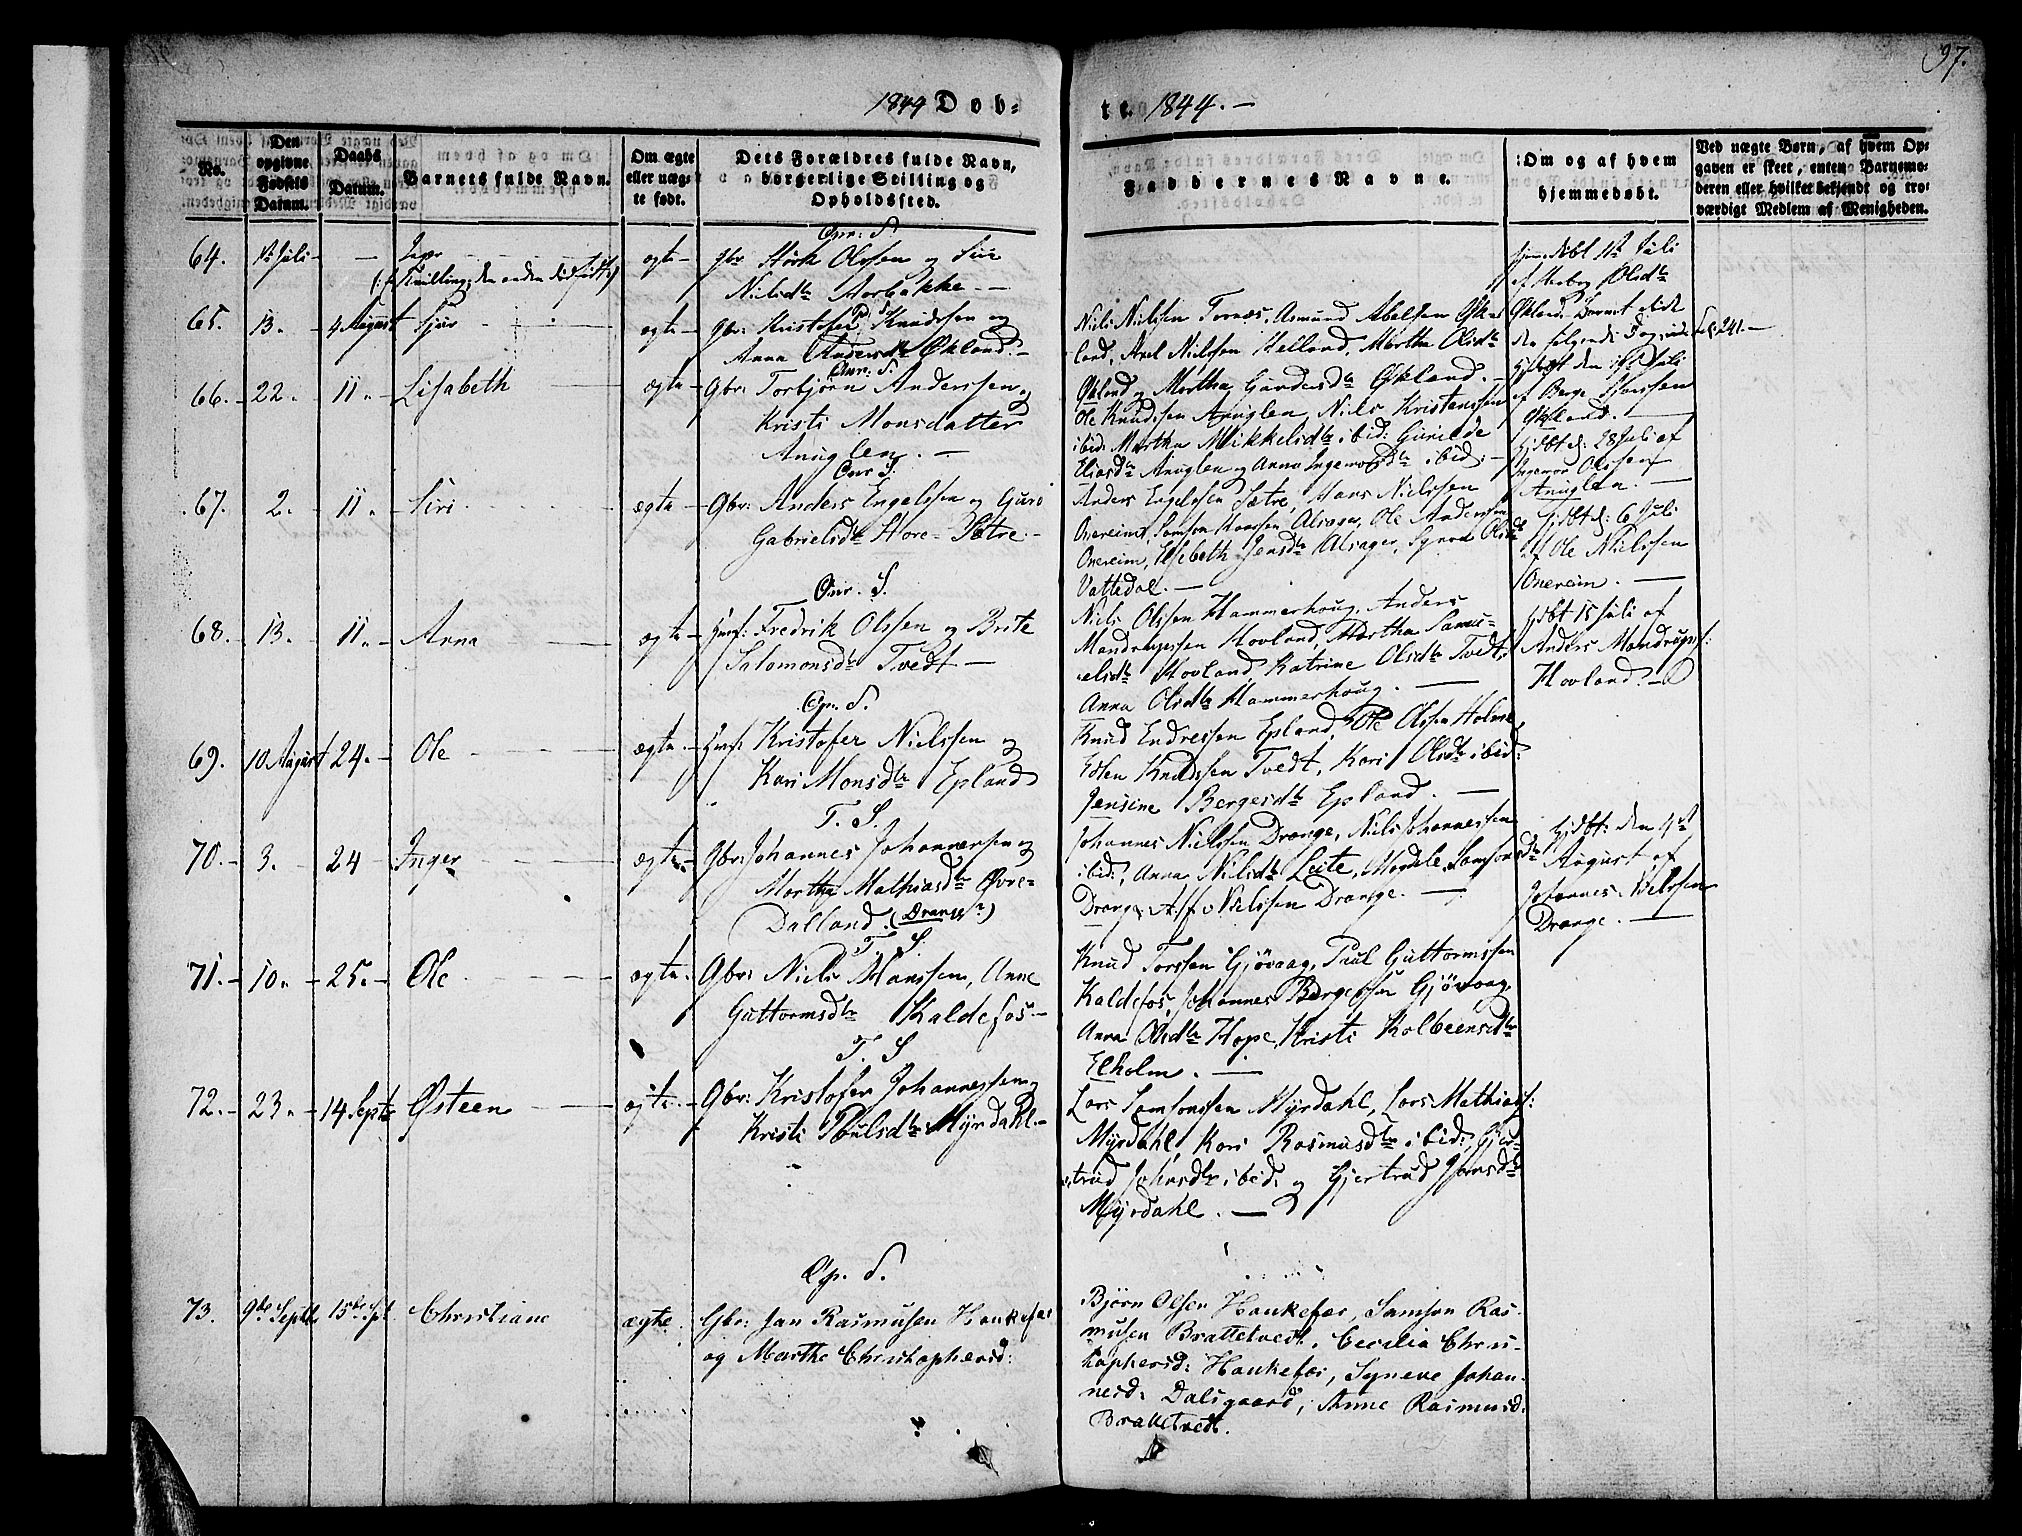 97.
1844 Døb-
te 1844. -
No.
Den opgivne Fødsels Datum.
Daabs Datum.
Barnets fulde Navn.
Om ægte eller uægte født.
Dets Forældres fulde Navn, borgerlige Stilling og Opholdssted.
Faddernes Navne.
Om og af hvem hjemmedøbt.
Ved uægte Børn, af hvem Opgaven er skeet, enten Barnemoderen eller hvilket bekjendt og troværdigt Medlem af Menigheden.
64.
Onr: S.
Gbr
Olssen og Siri
Nielsdtr Aarbakke -
65. 13. - 4 August
ægte - Gbr: Kristofer P. Knudssen og
Anna Andersdtr Økland -
Niels Nielssen Tornæs, Asmund Abelsen Øk-
land, Axel Nielssen Helland, Martha Olsdtr
Økland og Martha Gundersdtr Økland. -
Fol. 241. -
66. - 22. 11. - Lisabeth
Onr: S.
ægte - Gbr: Torbjørn Anderssen og
Kristi Monsdatter
Anuglen. -
Ole Knudssen Anuglen, Niels Kristenssen
ibid: Martha Mikkelsdtr ibid: Gurilde
Eliasdtr Anuglen og Anna Ingemosdtr ibid: -
Hjdbt d: 28 Juli af
Ingemor Olssen
Anuglen. -
67. 2. - 11. - Siri
Onr S.
ægte - Gbr: Anders Engelssen og Guro
Gabrielsdtr Hore-Sætre -
Anders Engelssen Sætre, Hans Nielssen
Onereimt, Samson Hanssen Alsager, Ole Andersen
Onereim, Elsebeth Jensdtr Alsager, Synva Olsdtr
Vattedal. -
Hjdbt d: 6 Juli
af Ole Nielssen
Onereim. -
68. - 13. - 11. - Anna
Onr. S.
ægte - Huusf: Fredrik Olssen og Brite
Salomonsdtr Tvedt -
Niels Olssen Hammerhoug, Anders
Mandrupssen Hovland, Martha Samu-
elsdtr Hovland, Katrine Olsdtr Tvedt,
Anna Olsdtr Hammerhoug. -
Hjdbt 15 Juli af
Anders Mandrupss:
Hovland. -
69. 10 August 24. - Ole
Op. S.
ægte. - Huusf: Kristofer Nielssen og
Kari Monsdtr Epland
Knud Endressen Epland, Ole Olssen Holme,
Edlen Knudssen Tvedt, Kari Olsdtr ibid:
Jensine Bergesdtr Epland. -
70. - 3. - 24 - Inger
T. S.
ægte - Gbr: Johannes Johannessen og
Martha Mathiasdtr Øvre-
Dalland. (Drange?)
Johannes Nielssen Drange, Niels Johannessen
ibid:, Anna Nielsdtr Leite, Magdele Samsonsdtr
Drange, Alf Nielssen Drange. -
Hjdbt: den 4de
August af
Johannes Nielssen
Drange. -
71. - 10. - 25. - Ole
T. S.
ægte. Gbr: Niels Hanssen, Anne
Guttormsdtr Kaldefos. -
Knud Torssen Gjøvaag, Paul Guttormssen
Kaldefos, Johannes Bergessen Gjøvaag,
Anna Olsdtr Hope, Kristi Kolbeensdtr
Elholm. -
72. - 23. - 14 Septr Østeen
T. S
ægte. - Gbr: Kristofer Johannessen og
Kristi Poulsdtr Myrdahl. -
Lars Samsonssen Myrdahl, Lars Mathiass:
Myrdahl, Kari Rasmusdtr ibid: Gjer-
trud Johnsdtr ibid: og Gjertrud Jonsdtr
Myrdahl. -
73. 9de Septb. 15de Spt. Christiane
Op. S.
ægte. Gbr: Jan Rasmusen Haukefær
og Marthe Christophersd:
Bjørn Olsen Haukefær, Samson Ras-
musen Brattetvedt, Cecilia Chris-
tophersd: Haukefær, Syneve Johan-
nesd: Dalsgaard, Anne Rasmusd:
Brattetvedt.